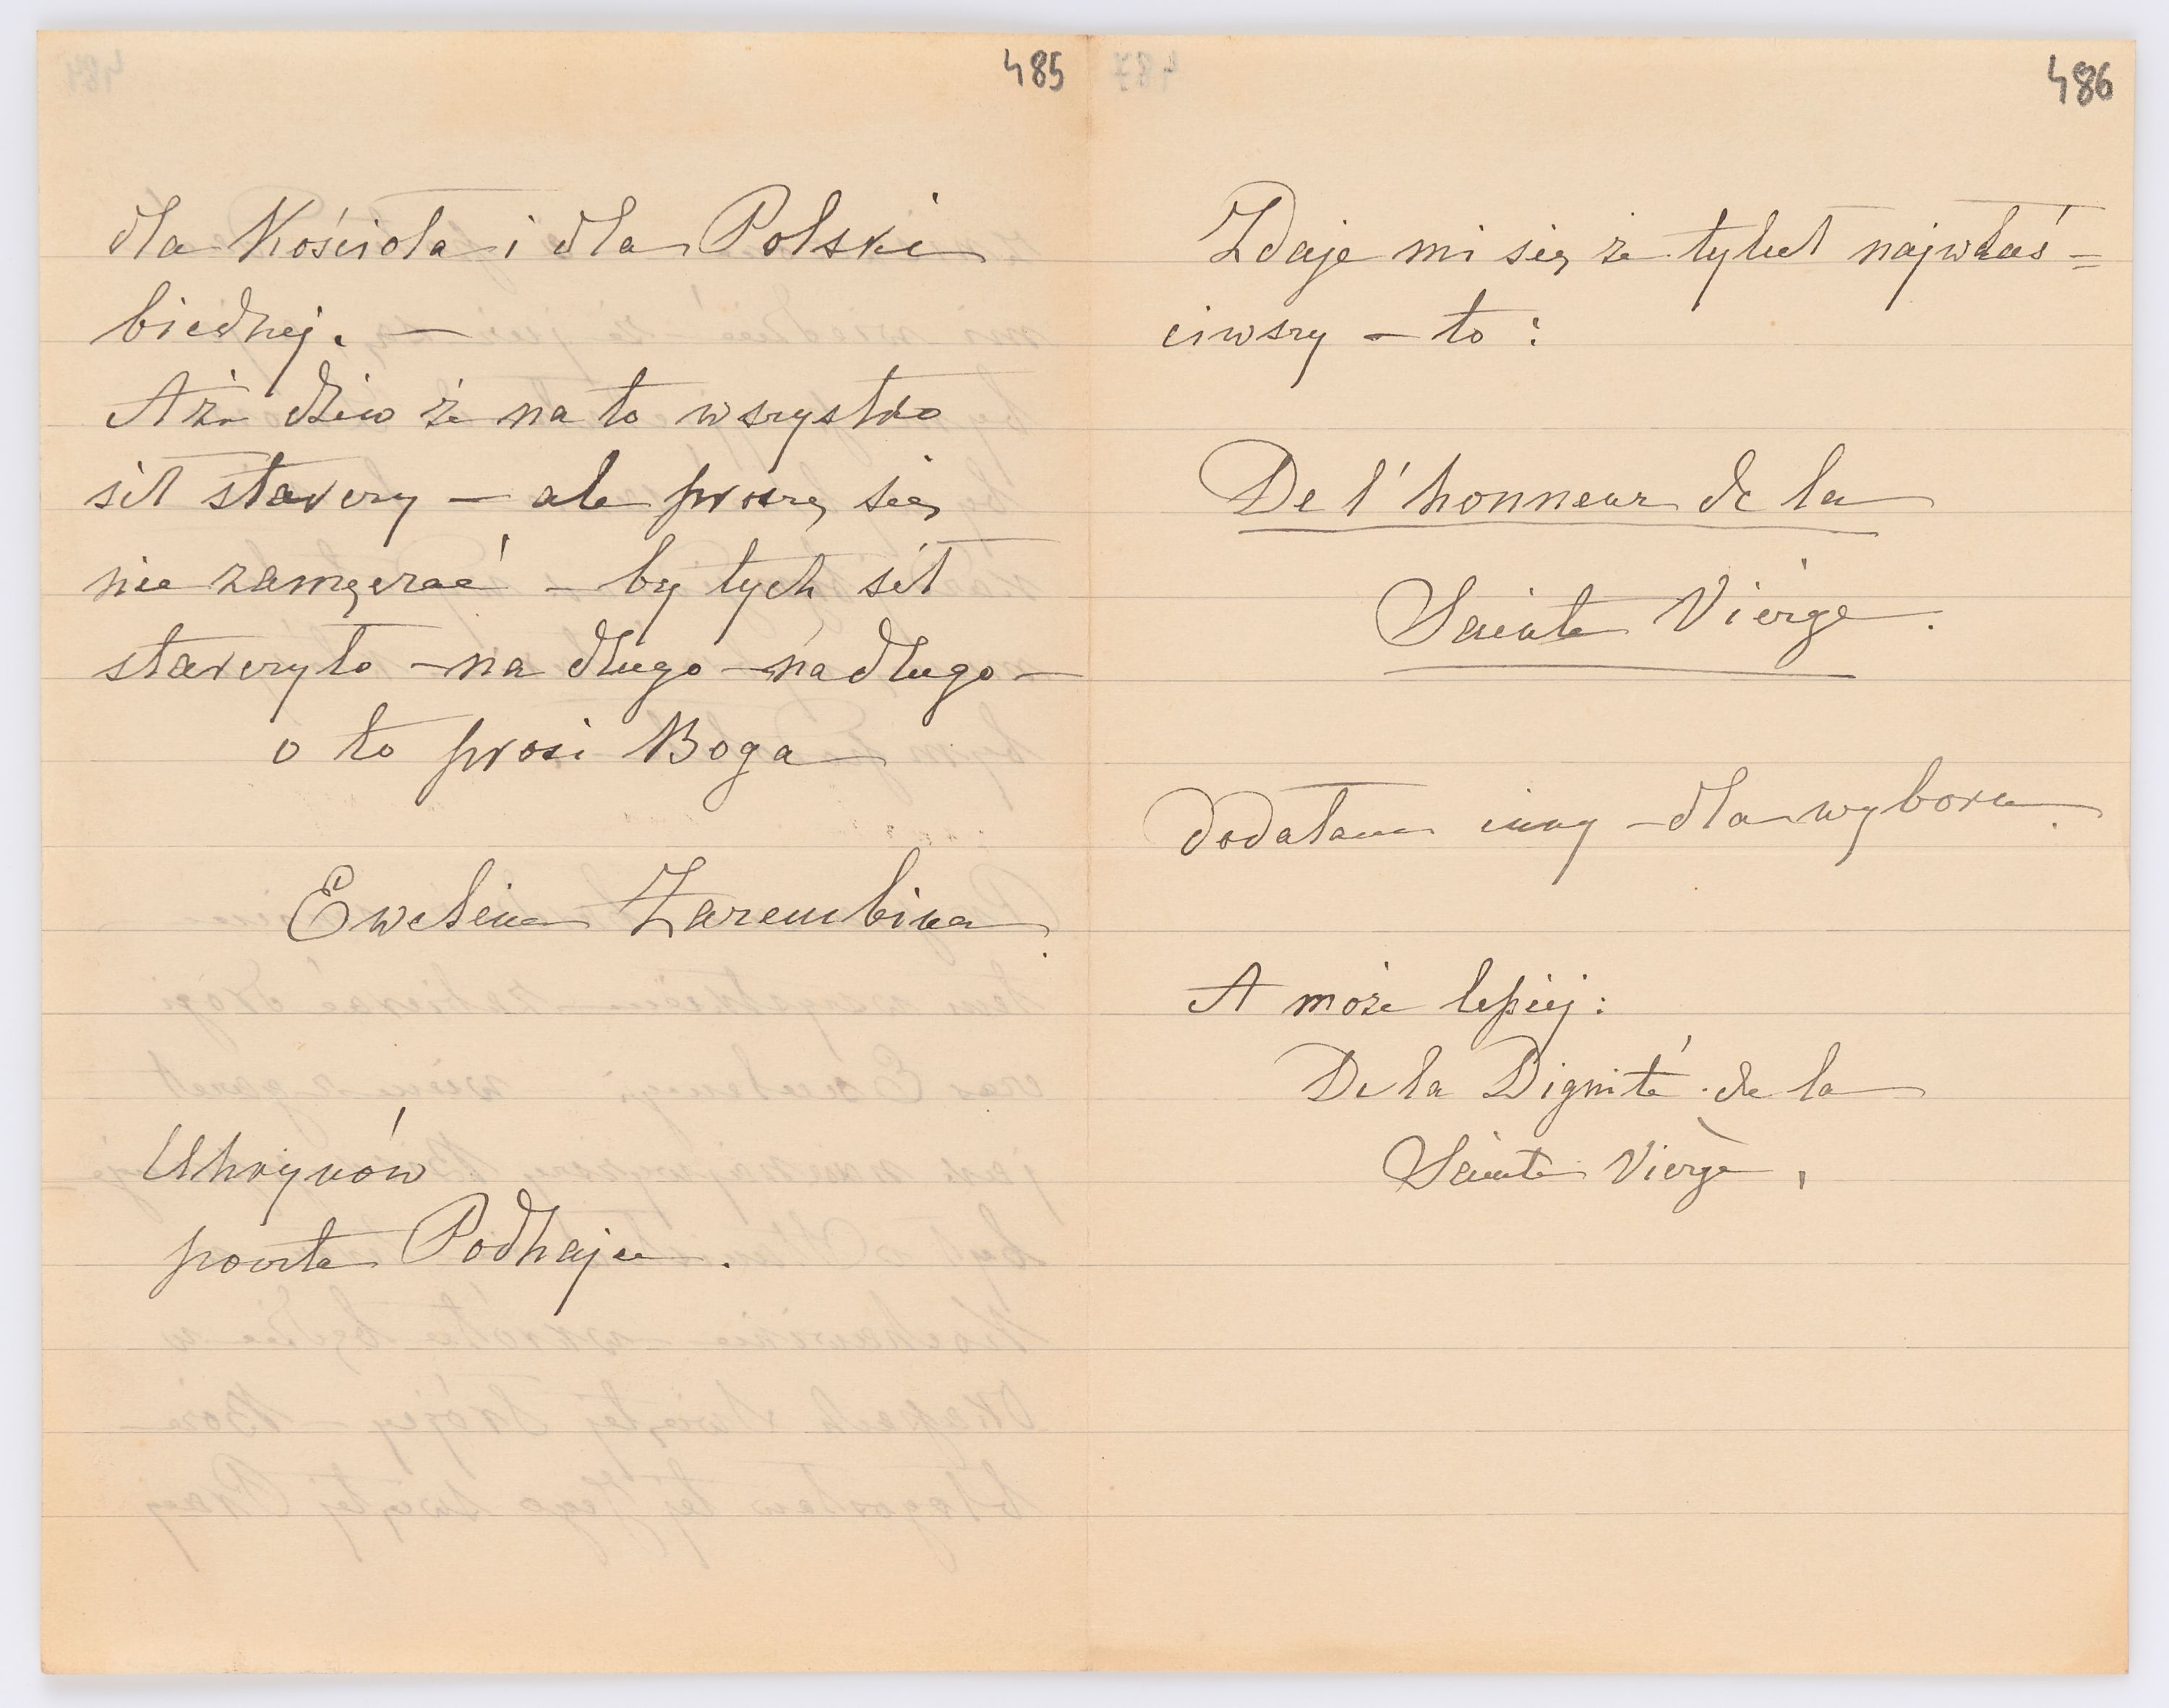 485
dla Kościoła i dla Polski
biednej. —
Aż dziw że na to wszystko
sił starczy — ale proszę się
nie zamęczać — by tych sił
starczyło — na długo — na długo —
o to prosi Boga
Ewelina Zarembina.
Uhrynów
poczta Podhajce.
486
Zdaje mi się że tytuł najwłaś=
ciwszy — to:
De l'honneur de la
Sainte Vierge.
Dodałam inny — dla wyboru.
A może lepiej:
De la Dignité de la
Sainte Vierge,